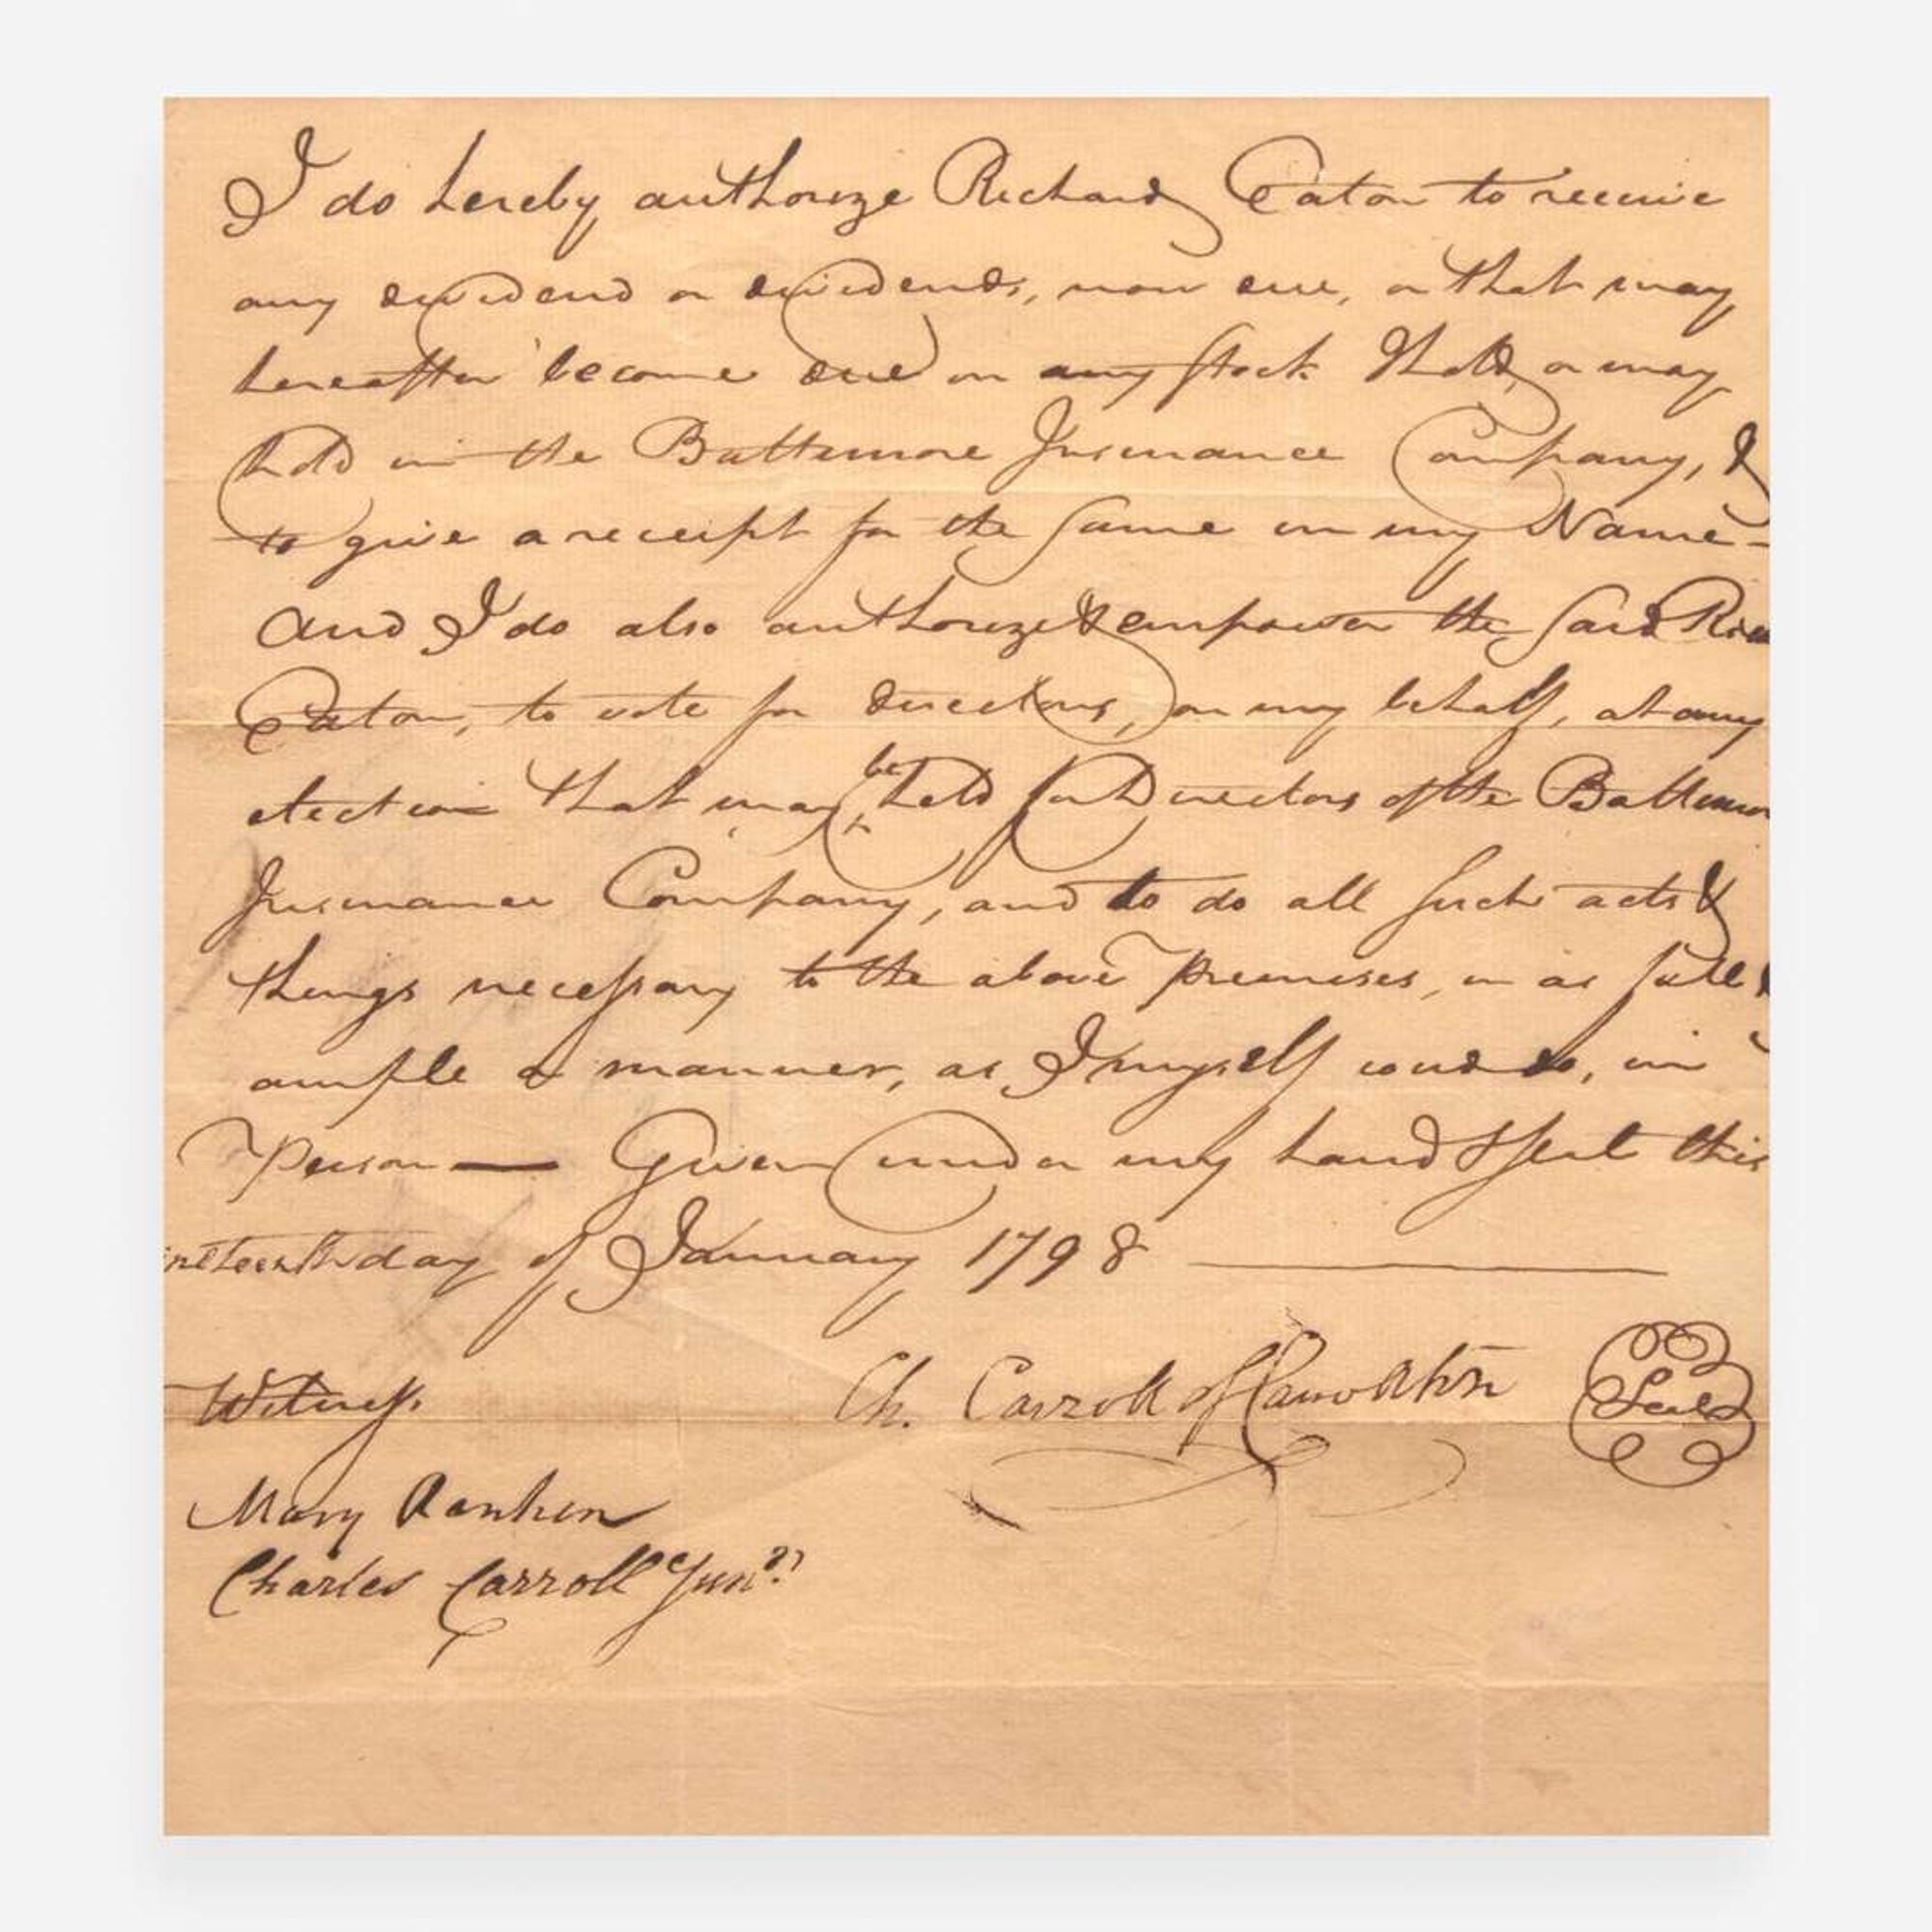 I do hereby authorize Richard Caton to receive
any dividend or dividends, now due, or that may
hereafter become due on any stock I hold, or may
hold in the Baltimore Insurance Company, &
to give a receipt for the same in my Name -
And I do also authorize & empower the said Rich
Caton, to vote for directors, on my behalf, at any
election that may be held for Directors of the Baltimor
Insurance Company, and to do all such acts &
things necessary to the above premises, in as full &
ample a manner, as I myself coud do, in
Person — Given under my hand & seal this
ineteenth day of January 1798
Witness Ch. Carroll of Carrollton Seal
Mary Rankin
Charles Carroll Junr.